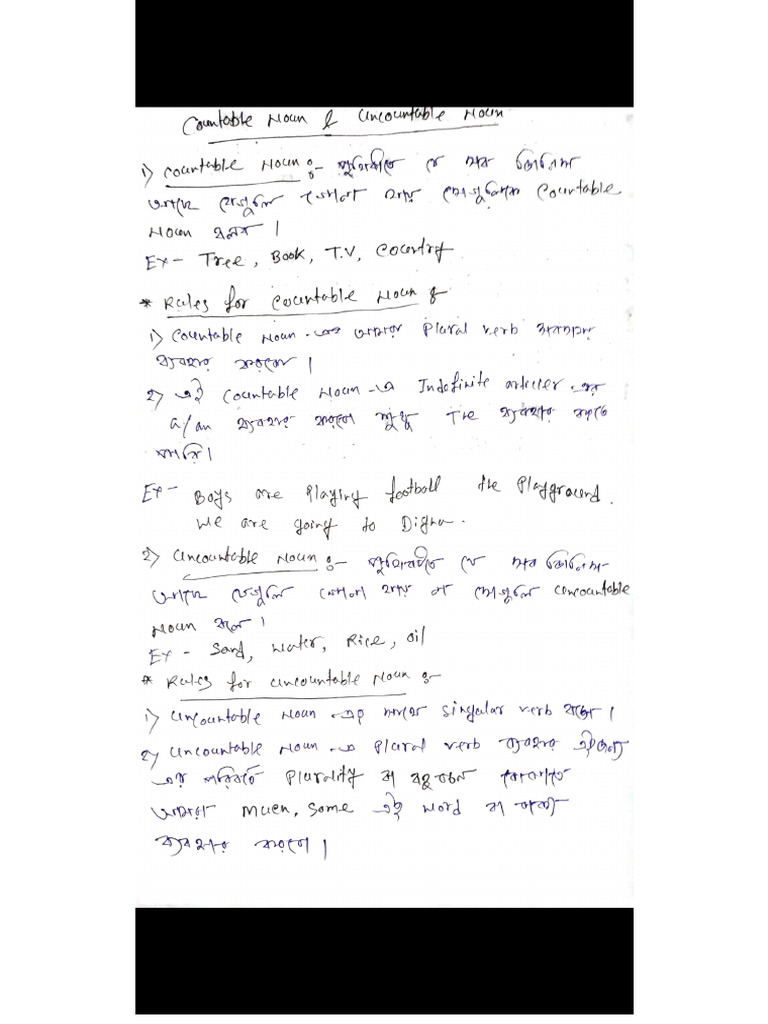 Countable Noun & Uncountable Noun
1) Countable Noun :- পৃথিবীতে যে সব জিনিস
আছে যেগুলি গোনা যায় সেগুলিকে Countable
Noun বলব।
Ex- Tree, Book, T.V, Country
* Rules for Countable Noun :
1) Countable Noun -এর আমরা Plural verb
ব্যবহার করবো।
2) এই Countable Noun -এ Indefinite articler -এর
a/an ব্যবহার করবো শুধু The ব্যবহার করতে
পারি।
Ex- Boys are Playing football the Playground.
we are going to Digha.
2) Uncountable Noun :- পৃথিবীতে যে সব জিনিস
আছে যেগুলি গোনা যায় না সেগুলি Uncountable
Noun বলে।
Ex - Sand, Water, Rice, Oil
* Rules for Uncountable Noun :-
1) Uncountable Noun -এর সাথে Singular verb বসে।
2) Uncountable Noun -এ Plural verb ব্যবহার
এর পরিবর্তে Plurality বা বহুবচন বোঝাতে
আমরা Much, Some এই word বা
ব্যবহার করবো।